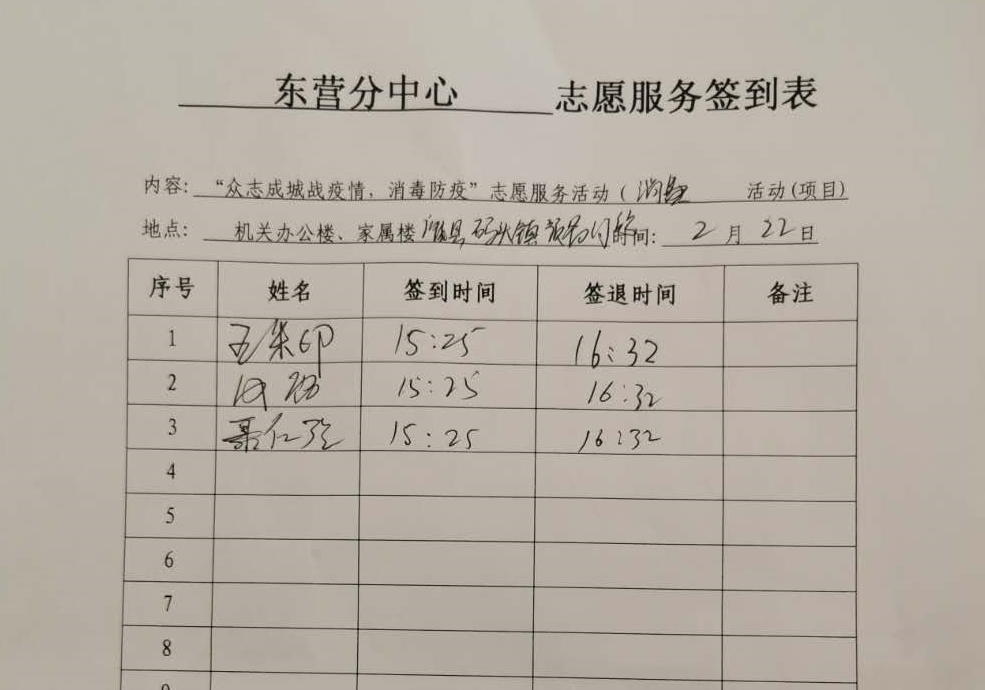 东营分中心 志愿服务签到表
内容: “众志成城战疫情，消毒防疫”志愿服务活动( 活动(项目)
地点: 机关办公楼、家属楼 码头镇 时间: 2 月 22 日
序号 姓名 签到时间 签退时间 备注
1 15:25 16:32
2 15:25 16:32
3 15:25 16:32
4
5
6
7
8
9